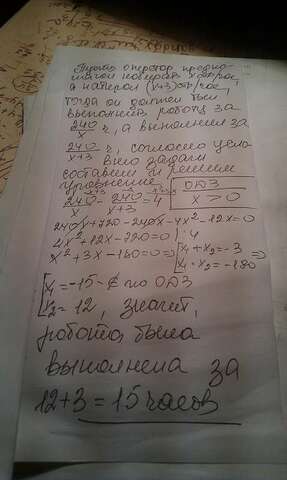 Пусть оператор предпо-
лагал набирать x стр/час,
а набирал (x+3) стр/час,
тогда он должен был
выполнить работу за
240/x ч, а выполнил за
240/x+3 ч, согласно
в/но задаче
составим и решим
уравнение ОДЗ
240/x - 240/x+3 = 4 x > 0
240x+720-240x-4x²-12x=0
4x²+12x-720=0 | :4
x²+3x-180=0 => [x₁+x₂=-3 =>
x₁·x₂=-180
[x₁=-15 - ∉ по ОДЗ
x₂=12, значит,
работа была
выполнена за
12+3=15 часов